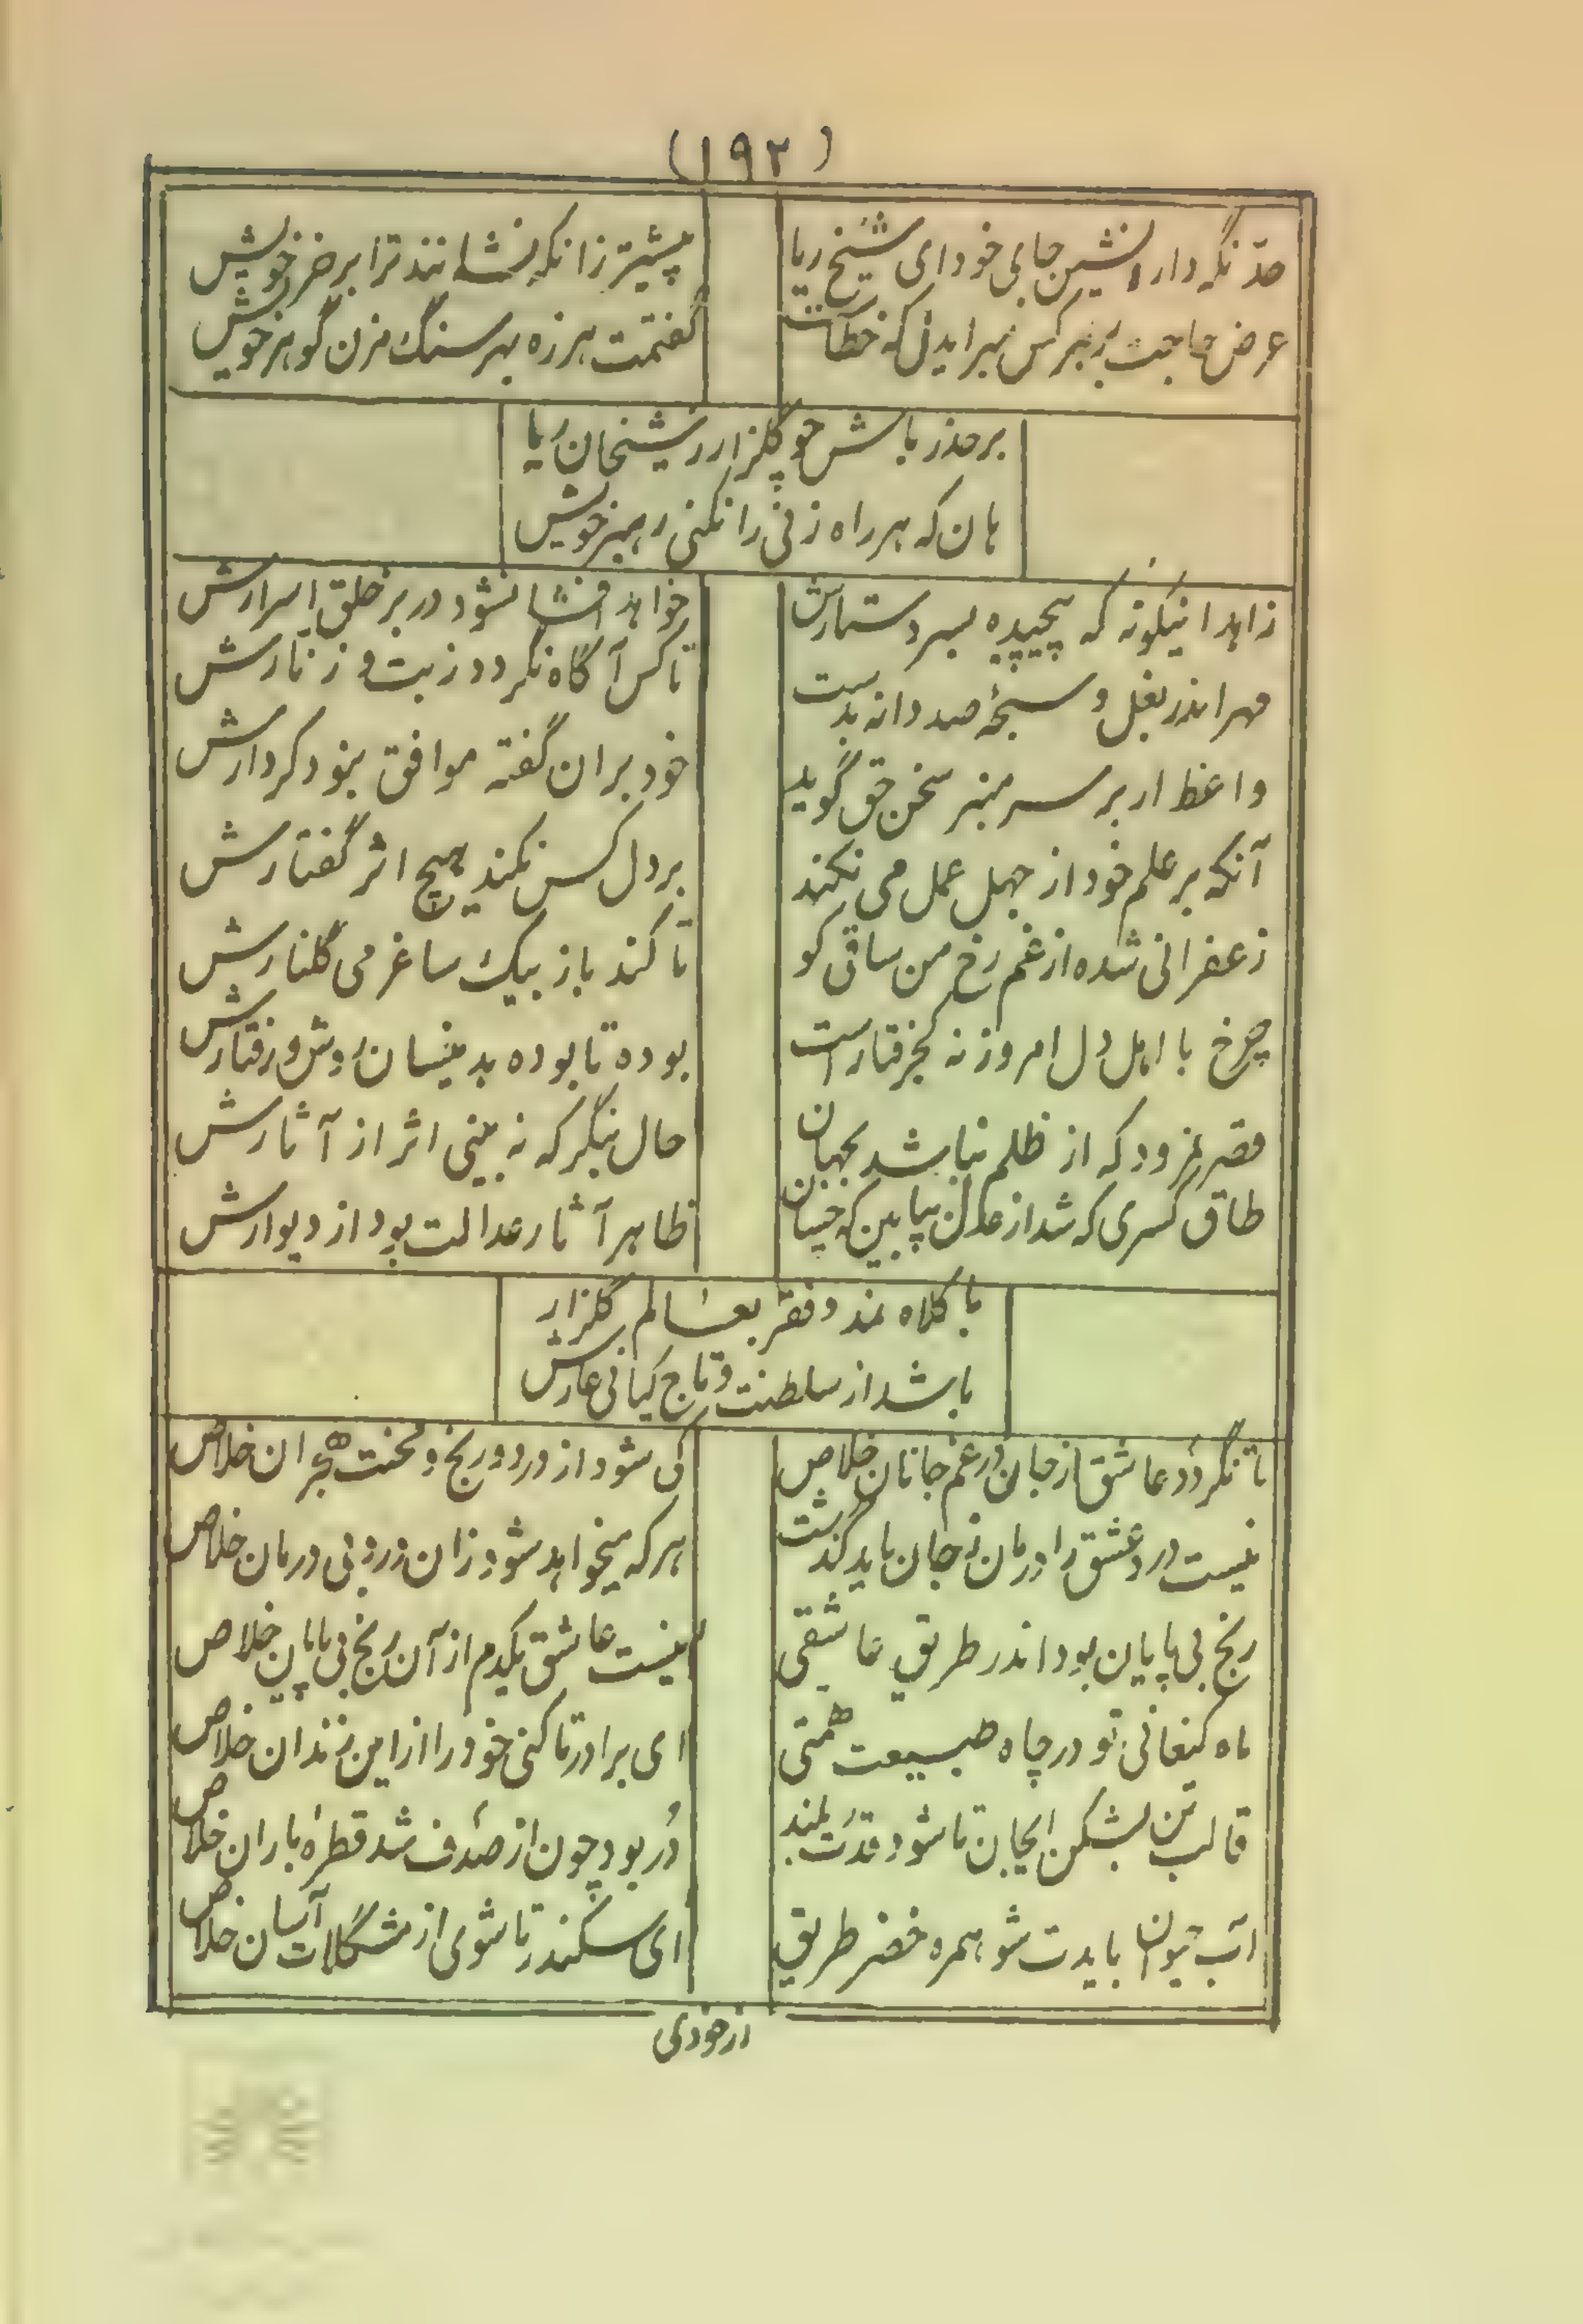 (۱۹۲)
حد نگه دار و نشین جای خود ای شیخ ریا
پیشتر زانکه نشانند ترا بر خر خویش
عرض حاجت بر هر کس مبر ایدل که خطاست
گفتمت هرزه بهر سنگ مزن گوهر خویش
بر حذر باش چو گلزار ز شیخان ریا
هان که هر راه زنی را نکنی رهبر خویش
زاهد اینگونه که پیچیده بسر دستارش
خواهد افشا نشود در بر خلق اسرارش
مهر اندر بغل و سبحهٔ صد دانه بدست
تا کس آگاه نگردد ز بت و زنارش
واعظ ار بر سر منبر سخن حق گوید
خود بران گفته موافق بنود کردارش
آنکه بر علم خود از جهل عمل می نکند
بر دل کس نکند هیچ اثر گفتارش
زعفرانی شده از غم رخ من ساقی کو
تا کند باز بیک ساغر می گلنارش
چرخ با اهل دل امروز نه کجرفتار است
بوده تا بوده بدینسان روش و رفتارش
قصر نمرود که از ظلم بنا شد بجهان
حال بنگر که نه بینی اثر از آثارش
طاق کسری که شد از عدل بپا بین که چسان
ظاهر آثار عدالت بود از دیوارش
با کلاه نمد و فقر بعالم گلزار
باشد از سلطنت و تاج کیانی عارش
تا نگردد عاشق از جان در غم جانان خلاص
کی شود از درد و رنج و محنت هجران خلاص
نیست درد عشق را درمان ز جان باید گذشت
هر که میخواهد شود زان درد بی درمان خلاص
رنج بی پایان بود اندر طریق عاشقی
نیست عاشق یکدم از آن رنج بی پایان خلاص
ماه کنعانی تو در چاه طبیعت همتی
ای برادر تا کنی خود را از این زندان خلاص
قالب تن بشکن ایجان تا شود قدرت بلند
دُر بود چون از صدف شد قطرهٔ باران خلاص
آب حیوان بایدت شو همره خضر طریق
ای سکندر تا شوی از مشکلات آسان خلاص
از خودی